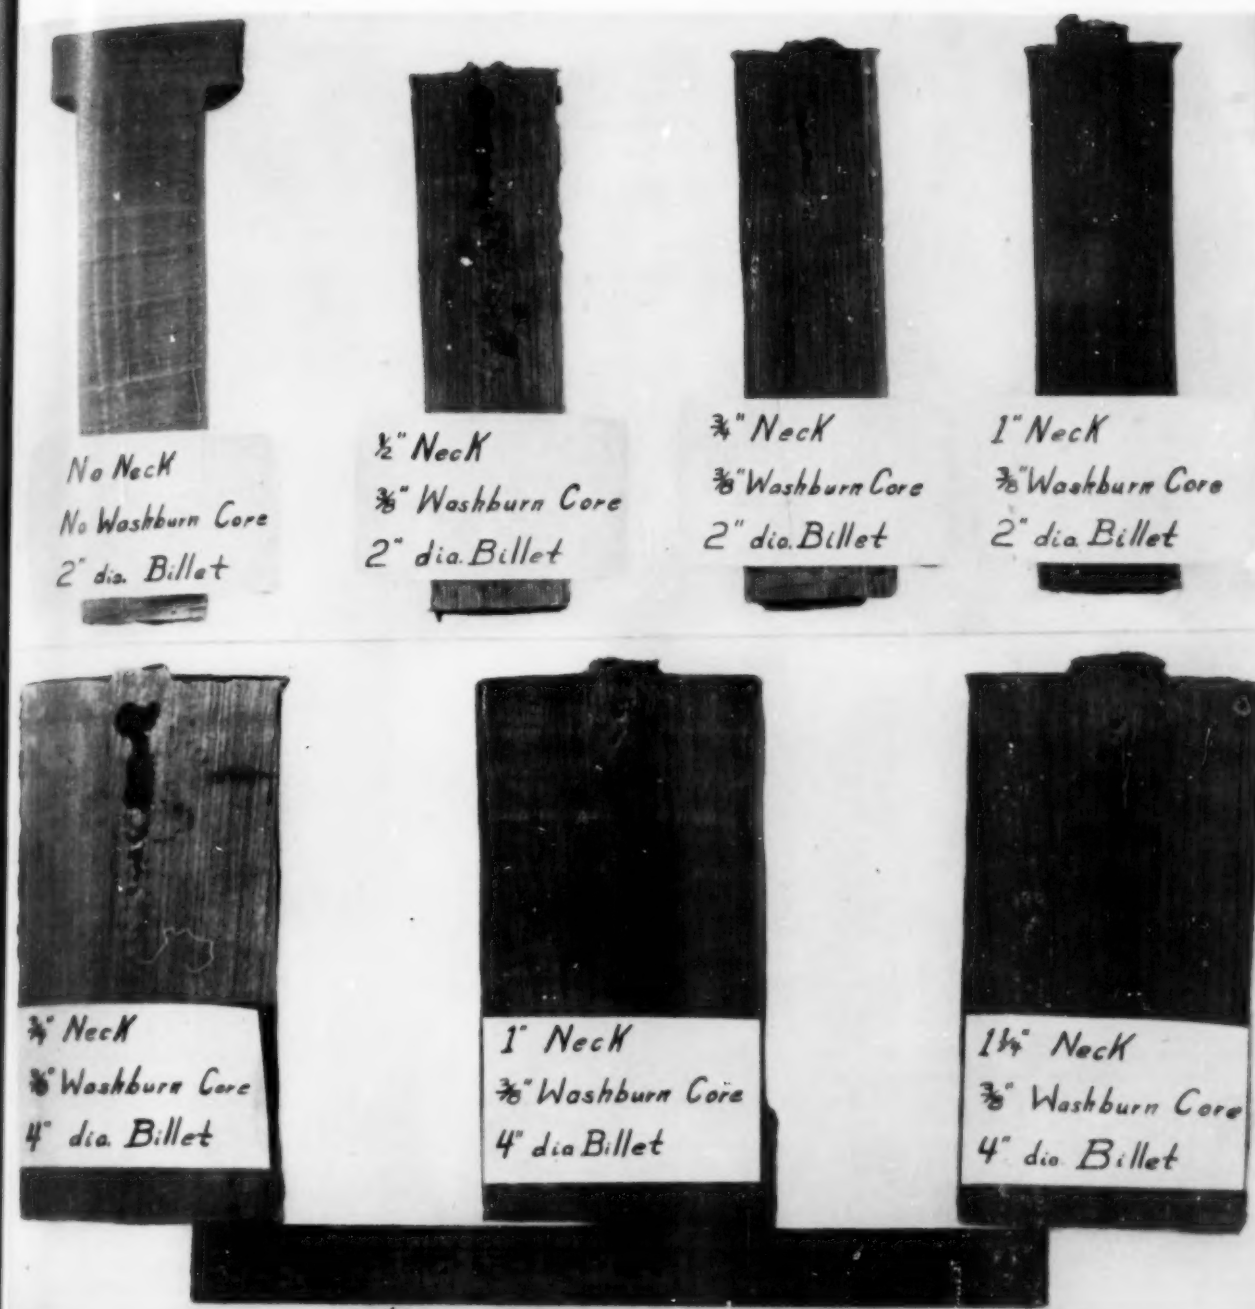 No Neck
No Washburn Core
2" dia. Billet
½" Neck
⅜" Washburn Core
2" dia. Billet
¾" Neck
⅜" Washburn Core
2" dia. Billet
1" Neck
⅜" Washburn Core
2" dia. Billet
¾" Neck
⅜" Washburn Core
4" dia. Billet
1" Neck
⅜" Washburn Core
4" dia Billet
1¼" Neck
⅜" Washburn Core
4" dia. Billet